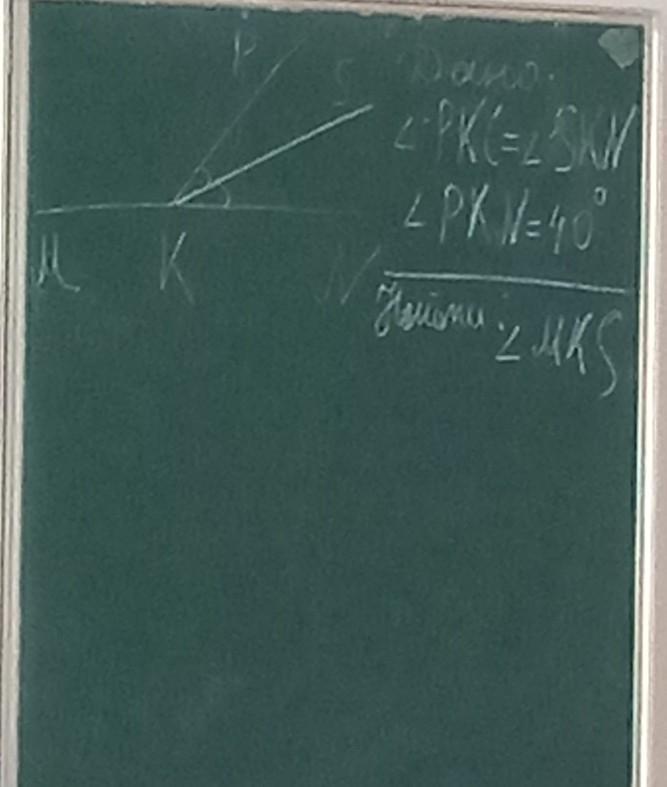 P
S
M K N
Дано:
∠PKC=∠SKN
∠PKN=40°
Найти: ∠MKS